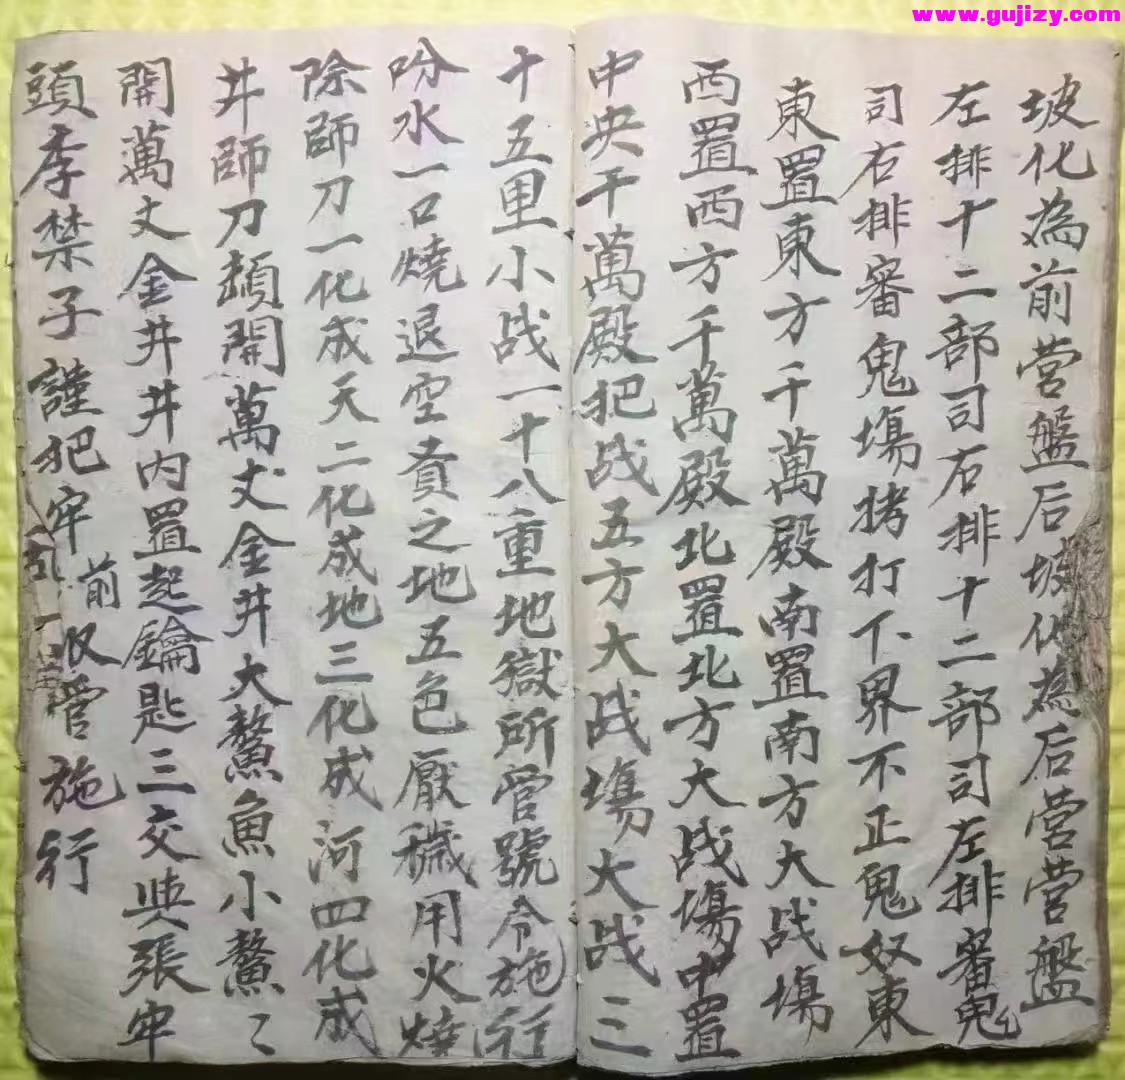 www.gujizy.com
坡化為前营盤后坡化為后营营盤
左排十二部司右排十二部司左排審鬼
司右排審鬼塲拷打下界不正鬼奴東
東置東方千萬殿南置南方大战塲
西置西方千萬殿北置北方大战塲中置
中央千萬殿把战五方大战塲大战三
十五里小战一十八重地獄所管號令施行
吩水一口燒退空責之地五色厭穢用火燒
除師刀一化成天二化成地三化成河四化成
井師刀頭開萬丈金井大鰲魚小鰲〻
開萬丈金井井内置起鑰匙三交與張牢
頭李禁子謹把牢前收管施行